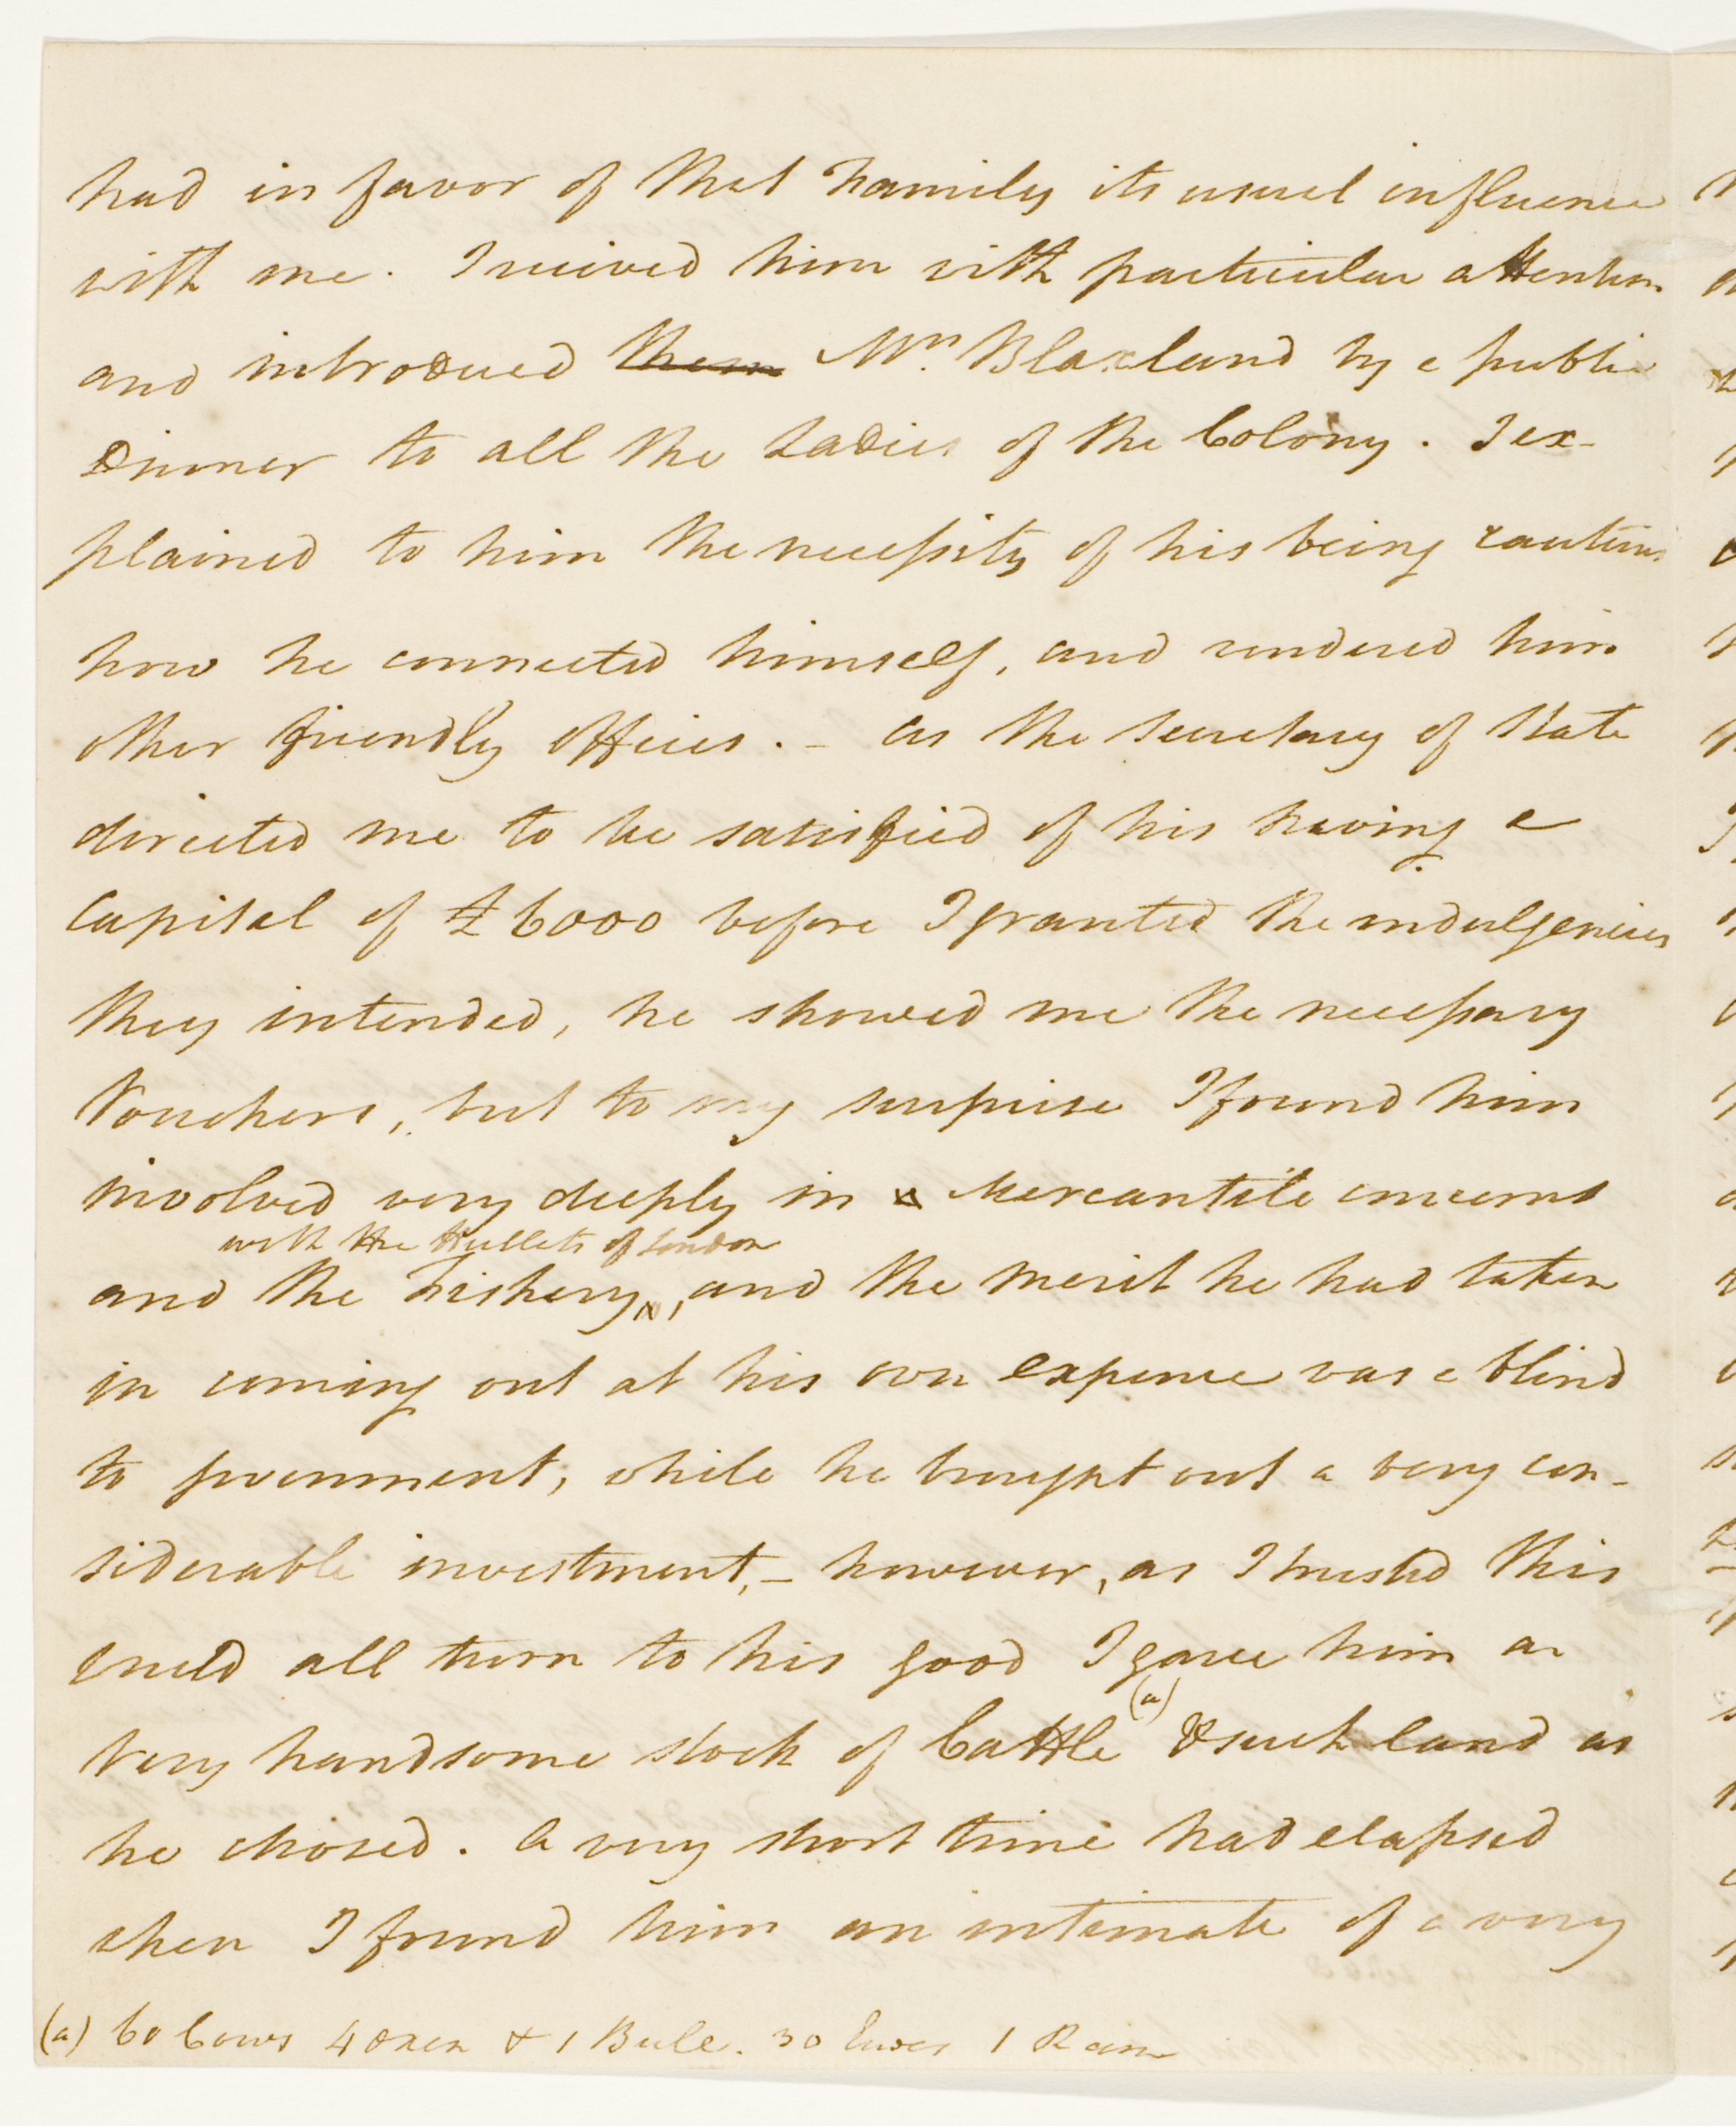 had in favor of that Family its usual influence
with me. I received him with particular attention
and introduced them Mrs. Blaxland by a public
Dinner to all the Ladies of the Colony. I ex-
plained to him the necessity of his being cautious
how he connected himself, and rendered him
other friendly offices. - As the Secretary of State
directed me to be satisfied of his having a
Capital of £6000 before I granted the indulgencies
they intended, he showed me the necessary
Vouchers, but to my surprise I found him
involved very deeply in a Mercantile concerns
with the Hulletts of London
and the Fishery, and the merit he had taken
in coming out at his own expence was a blind
to government, while he brought out a very con-
siderable investment, - however, as I trusted this
could all turn to his good I gave him a
very handsome stock of Cattle (a) & such land as
he chosed. A very short time had elapsed
when I found him an intimate of a very
(a) 60 Cows 4 Oxen & 1 Bull. 30 Ewes 1 Ram